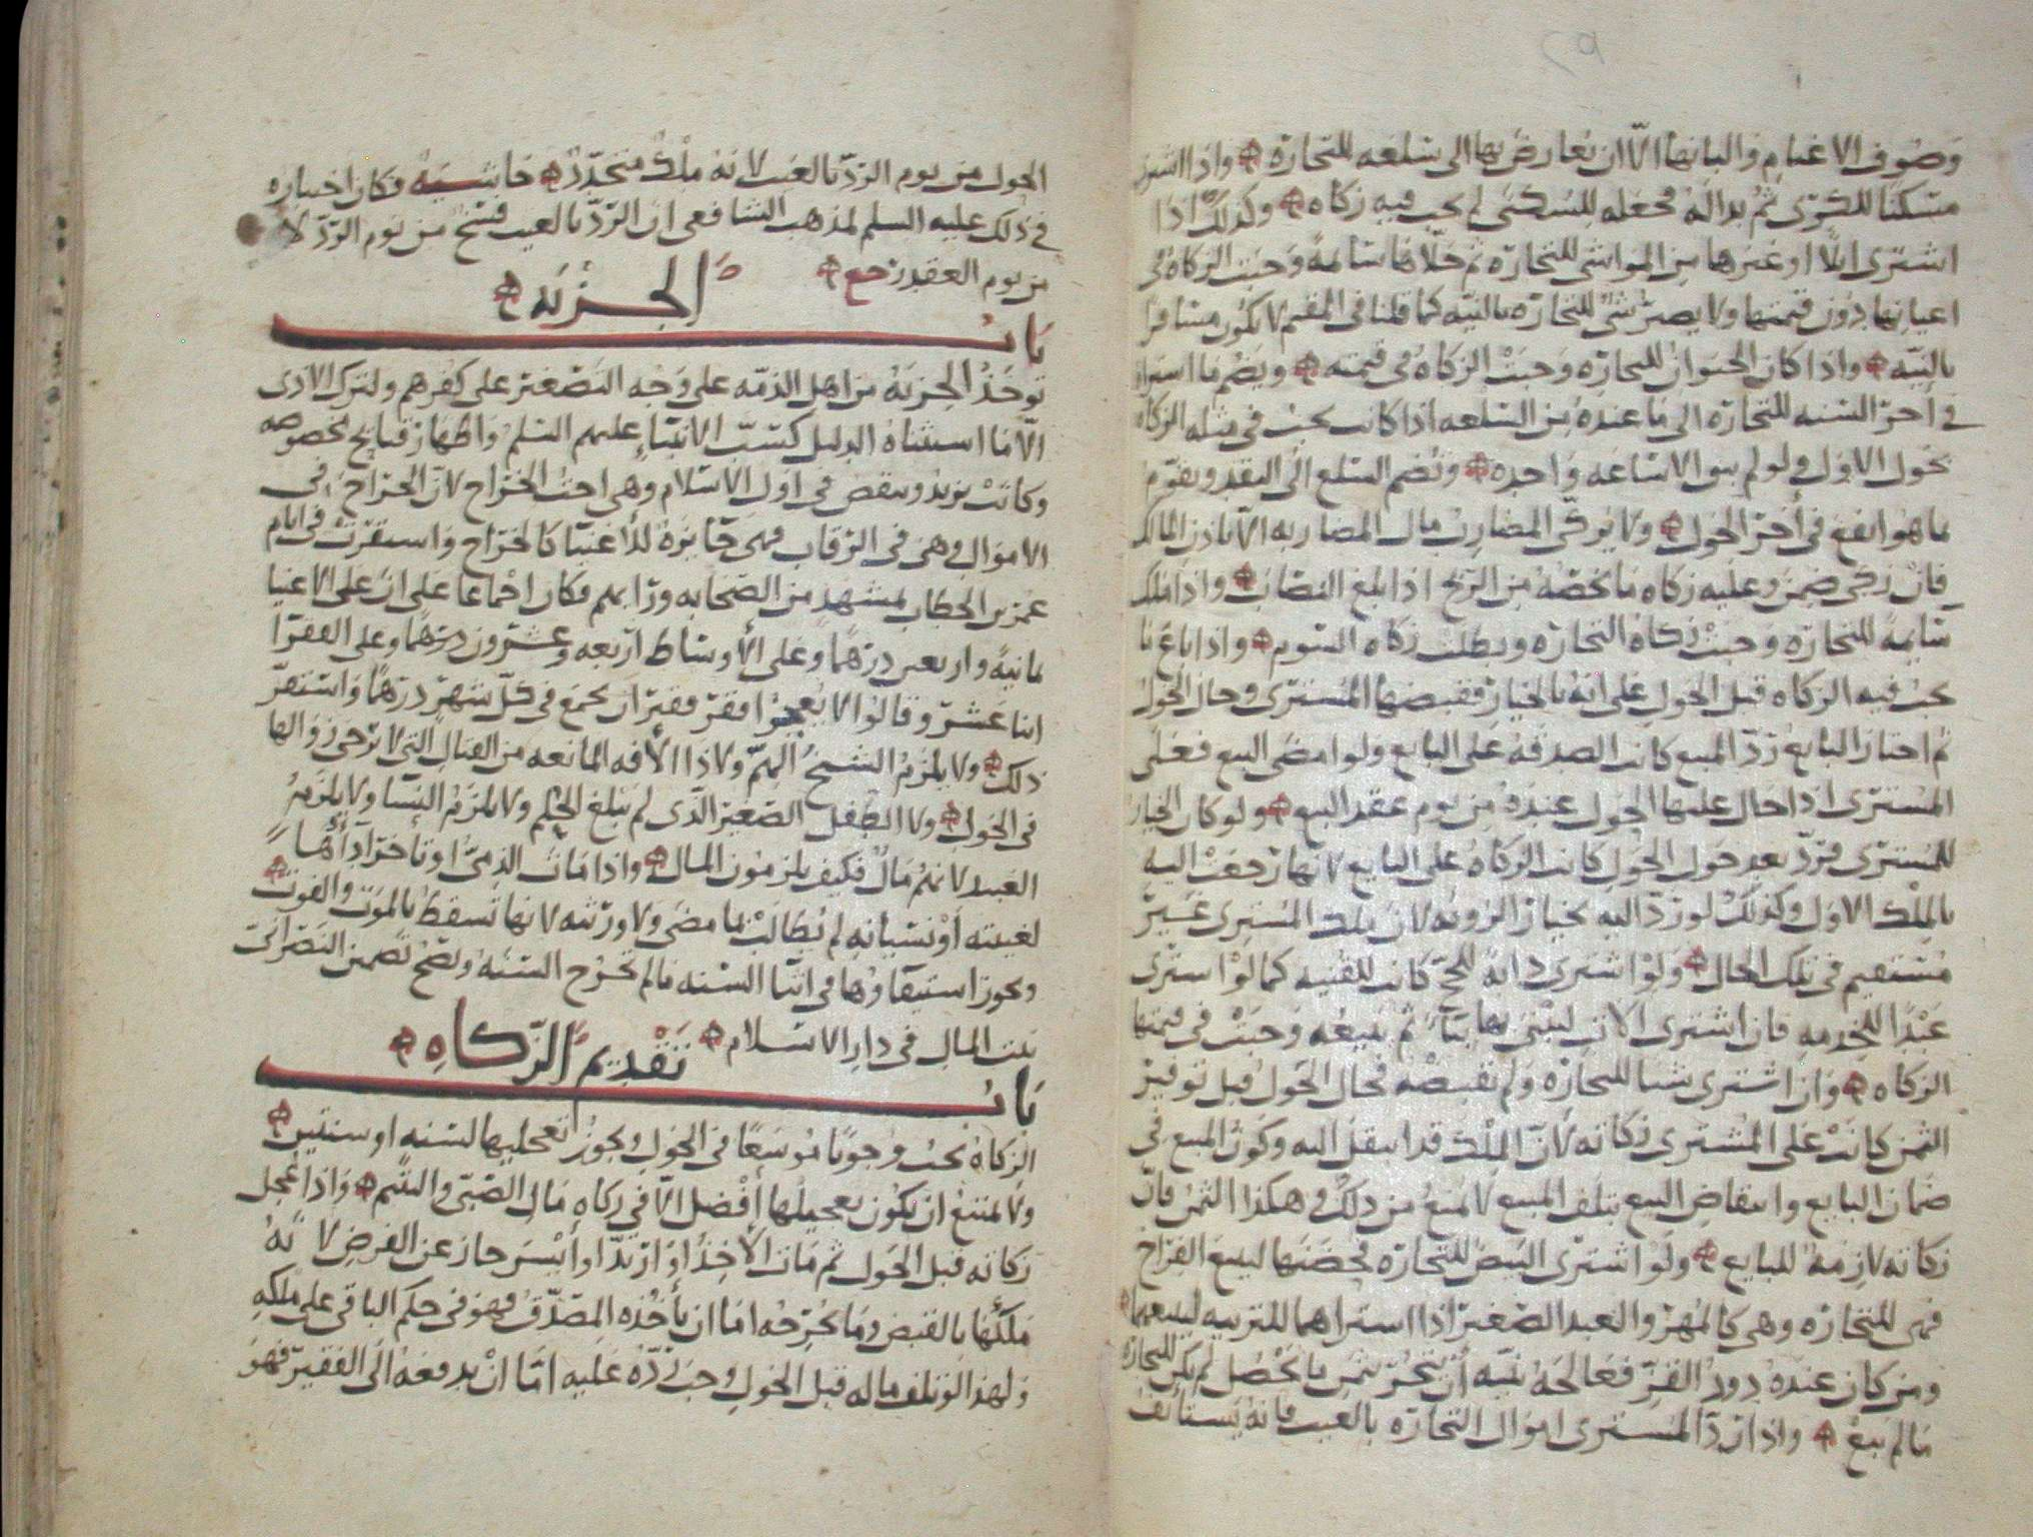 وصوف الاغنام والبانها الا ان يعارض بها الى سلعه للتجارة واذا اشترى
مسكنا للكرى ثم بدا له فجعله للسكنى لم يجب فيه زكاه وكذلك اذا
اشترى ابلا او غيرها من المواشي للتجاره ثم خلاها سائمة وجبت الزكاة في
اعيانها دون قيمتها ولا يصير شي للتجاره بالنيه كما قلنا في المقيم لا يكون مسافرا
بالنيه واذا كان الحيوان للتجاره وجبت الزكاة في قيمته ويضم ما استراه
في اخر السنه للتجاره الى ما عنده من السلعه اذا كانت يجب في مثله الزكاه
بحول الاول ولو لم يبق الا ساعه واحده وتضم السلع الى النقد ويقوم
بما هو انفع في أخر الحول ولا يزكي المضارب مال المضاربه الا باذن المالك
فان زكى ضمن وعليه زكاه ما يخصه من الربح اذا بلغ النصاب واذا ملك
سائمة للتجاره وجبت زكاة التجاره وبطلت زكاه السوم واذا باع ما
يجب فيه الزكاه قبل الحول على انه بالخيار فقبضها المشترى وحال الحول
ثم اختار البايع رد المبيع كانت الصدقه على البايع ولو امضى البيع فعلى
المشترى اذا حال عليها الحول عنده من يوم عقد البيع ولو كان الخيار
للمشترى فرد بعد حول الحول كانت الزكاة على البايع لانها رجعت اليه
بالملك الاول وكذلك لو رد اليه بخيار الرويه لان ملك المشترى غير
مستقيم في تلك الحال ولو اشترى دابة للحج كانت للقنيه كما لو استرى
عبدا للخدمه فان اشترى الاتن لينتج بها ثم يبيعه وجبت في قيمتها
الزكاه وان اشترى شيا للتجارة ولم يقبضه فحال الحول قبل توفير
الثمن كانت على المشترى زكاته لان الملك قد انتقل اليه وكون المبيع في
ضمان البايع وانتقاض البيع بتلف المبيع لا يمنع من ذلك وهكذا الثمن فان
زكاته لازمة للبايع ولو اشترى البيض للتجاره فحضنها ليبيع الفراخ
فهى للتجاره وهي كالمهر والعبد الصغير اذا استراهما للتربيه ليبيعهما
ومن كان عنده دود القز فعالجه بنيه أن يتجر بثمن ما يحصل لم يكن للتجاره
ما لم يبع واذا رد المشترى اموال التجاره بالعيب فانه يستانف
الحول من يوم الرد بالعيب لانه ملك متجدد حاشيه فكان اختياره
في ذلك عليه السلم لمذهب الشافعى ان الرد بالعيب فسخ من يوم الرد لا
من يوم العقد رجع
باب الجزيه
توخذ الجزية من اهل الذمه على وجه التصغير على كفرهم ولترك الاذى
الا ما استثناه الدليل كسب الانبيا عليهم السلم واظهار قبايح مخصوصه
وكانت يزيد وينقص في اول الاسلام وهي اخت الخراج لان الخراج في
الاموال وهي في الرقاب فهى جايزة للاغنيا كالخراج واستقرت في ايام
عمر بن الخطاب بمشهد من الصحابه ورايهم فكان اجماعا على ان على الاغنيا
ثمانية واربعين درهما وعلى الأوساط اربعه وعشرون درهما وعلى الفقرا
اثنا عشر وقالوا لا يعجز افقر فقير ان يجمع في كل شهر درهما واستقر
ذلك ولا يلزم الشيخ الهم ولا ذا الأفه المانعه من القتال التي لا ترجى زوالها
في الحول ولا الطفل الصغير الذى لم يبلغ الحلم ولا يلزم النسا ولا يلزم
العبيد لانهم مال فكيف يلزمون المال واذا مات الذمى او تأخر ادأها
لغيبته أو نسيانه لم يطالب لما مضى ولا ورثته لانها تسقط بالموت والفوت
ويجوز استيفاؤها في اثنا السنه مالم تخرج السنه ويصح تضمين النصراني
بيت المال في دار الاسلام
باب تقديم الزكاه
الزكاة يجب وجوبا موسعا في الحول ويجوز تعجيلها لسنه او سنتين
ولا يمتنع ان يكون تعجيلها أفضل الا في زكاه مال الصبى واليتيم واذا عجل
زكاته قبل الحول ثم مات الآخذ او ارتد او ايسر جاز عن الفرض لانه
ملكها بالقبض وما يخرجه اما ان يأخذه المصدق فهو في حكم الباقى على ملكه
ولهذا لو تلف ماله قبل الحول وجب رده عليه اما ان يدفعه الى الفقير فهو